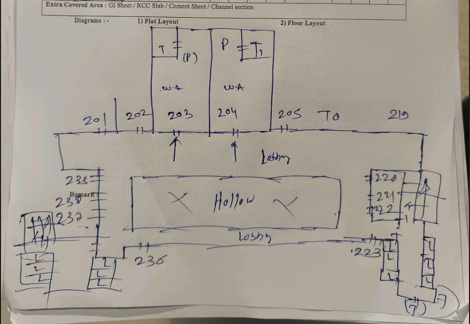 Extra Covered Area : GI Sheet / RCC Slab / Cement Sheet / Channel section
Diagrams :- 1) Flat Layout 2) Floor Layout
T (P) P T
W.A W.A
201 202 203 204 205 TO 219
Lobby
238 220
Remark
221
237 222
Hollow
Lobby
236 223